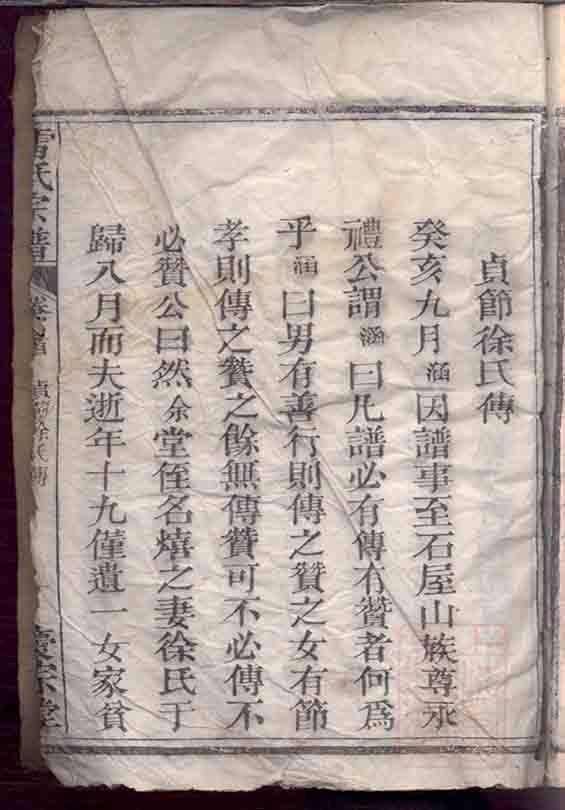 貞節徐氏傳
癸亥九月涵因譜事至石屋山族尊承
禮公謂涵曰凡譜必有傳有贊者何為
乎涵曰男有善行則傳之贊之女有節
孝則傳之贊之餘無傳贊可不必傳不
必贊公曰然余堂侄名熺之妻徐氏于
歸八月而夫逝年十九僅遺一女家貧
氏宗譜
貞節徐氏傳
慶宗堂